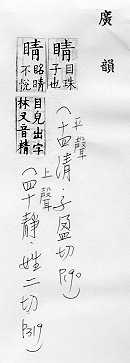 廣韻
睛 目珠子也
(平聲十四清．子盈切 P190)
睛 眳睛不悅
目皃出字林又音精
(上聲四十靜．姓二切 P319)